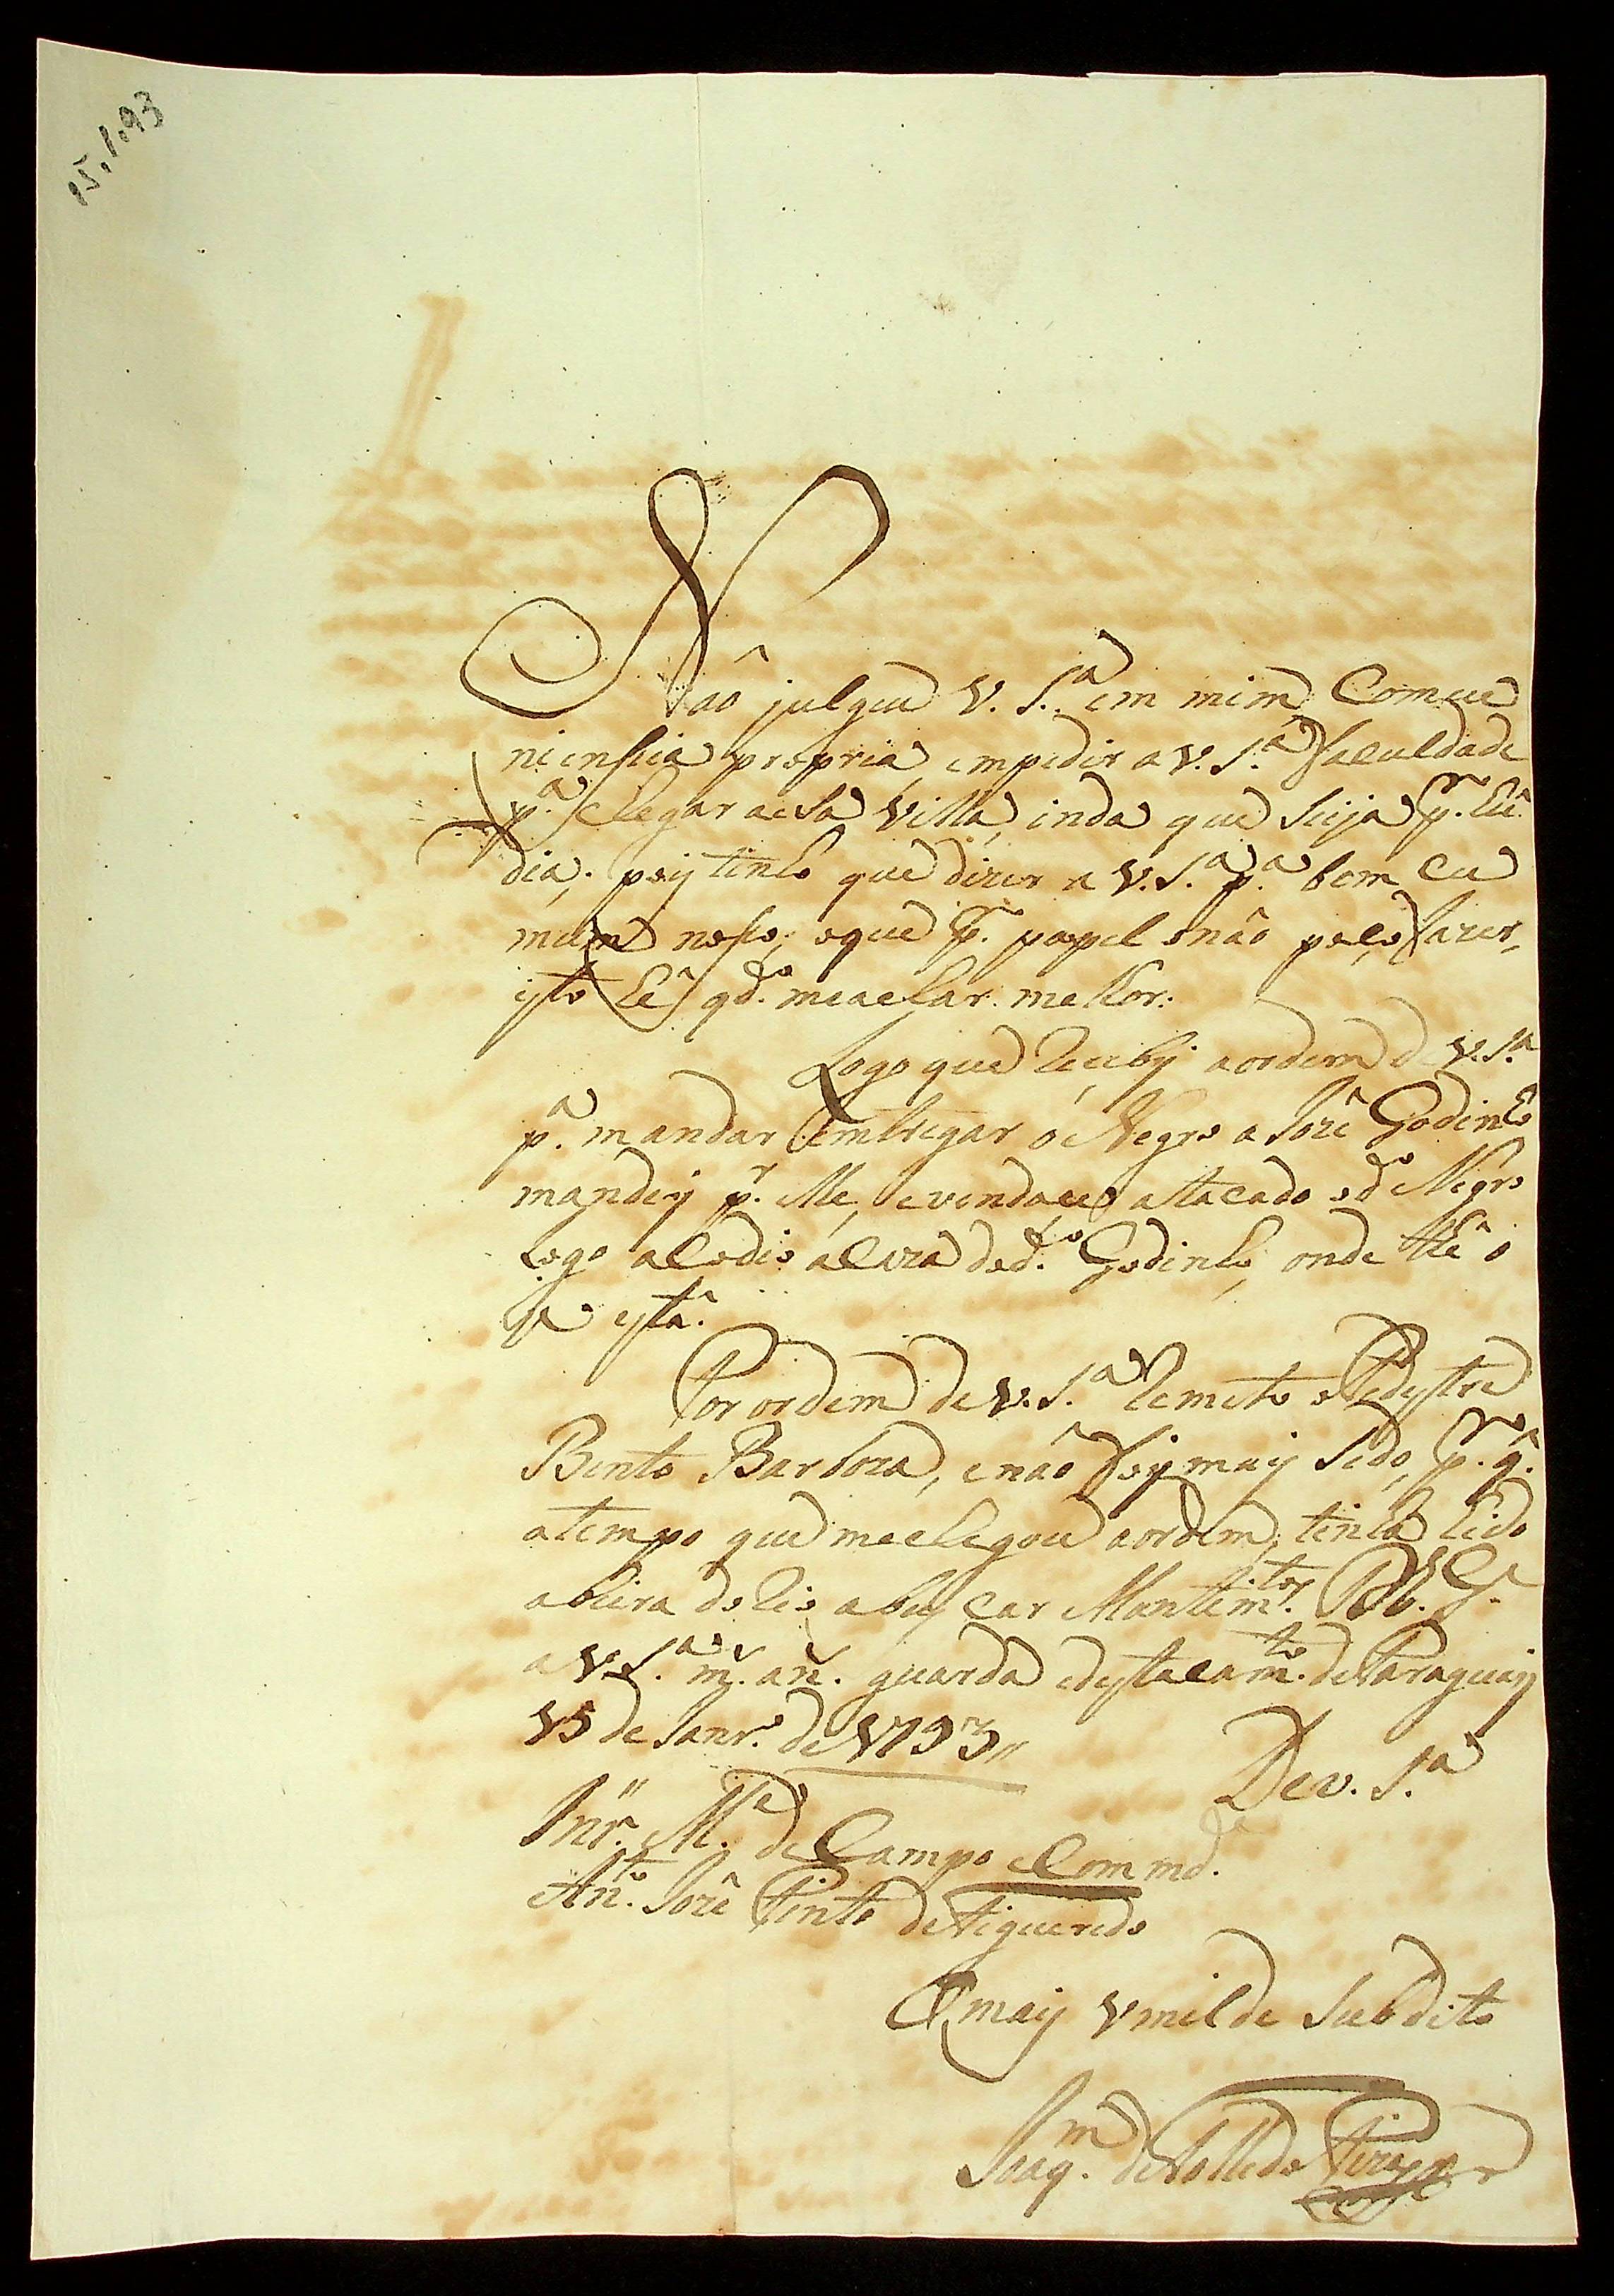 15,1,93
Naô julgue V. S.ª em mim Comue
niensia propria, empedir a V. S.ª faculdade
p.ª chegar aesa Villa, inda que seija p.r hũ
dia; poij tenho que dizer a V. S.ª p.ª bem cu
mum noso; oque p.r papel onaô poso fazer,
ijto hê q.do me achar melhor.
Logo que Recebj aordem de V. S.ª
p.ª mandar emtregar o Negro a Jozê Godinho
mandej p.r Elle, e vendo atacado o d.o Negro
logo alcodio a Caza do d.to Godinho, onde thê o
je estâ.
Por ordem de V. S.ª Remeto o Pedestre
Bento Barboza, e naô foj maij sedo, p.r q.
a tempo que me chegou aordem, tinha hido
abeira do Rio abuscar Mantim.tos D.s G.e
a V. S.ª m.s an.s guarda edestacam.to do Paraguaij
15 de Janr.o de 1793//
De V. S.ª
Snr. M.e de Campo e Commd.e
An.to Jozê Pinto de Figueredo
O maij Vmilde Subdito
Joaq.m de Tolledo Piza